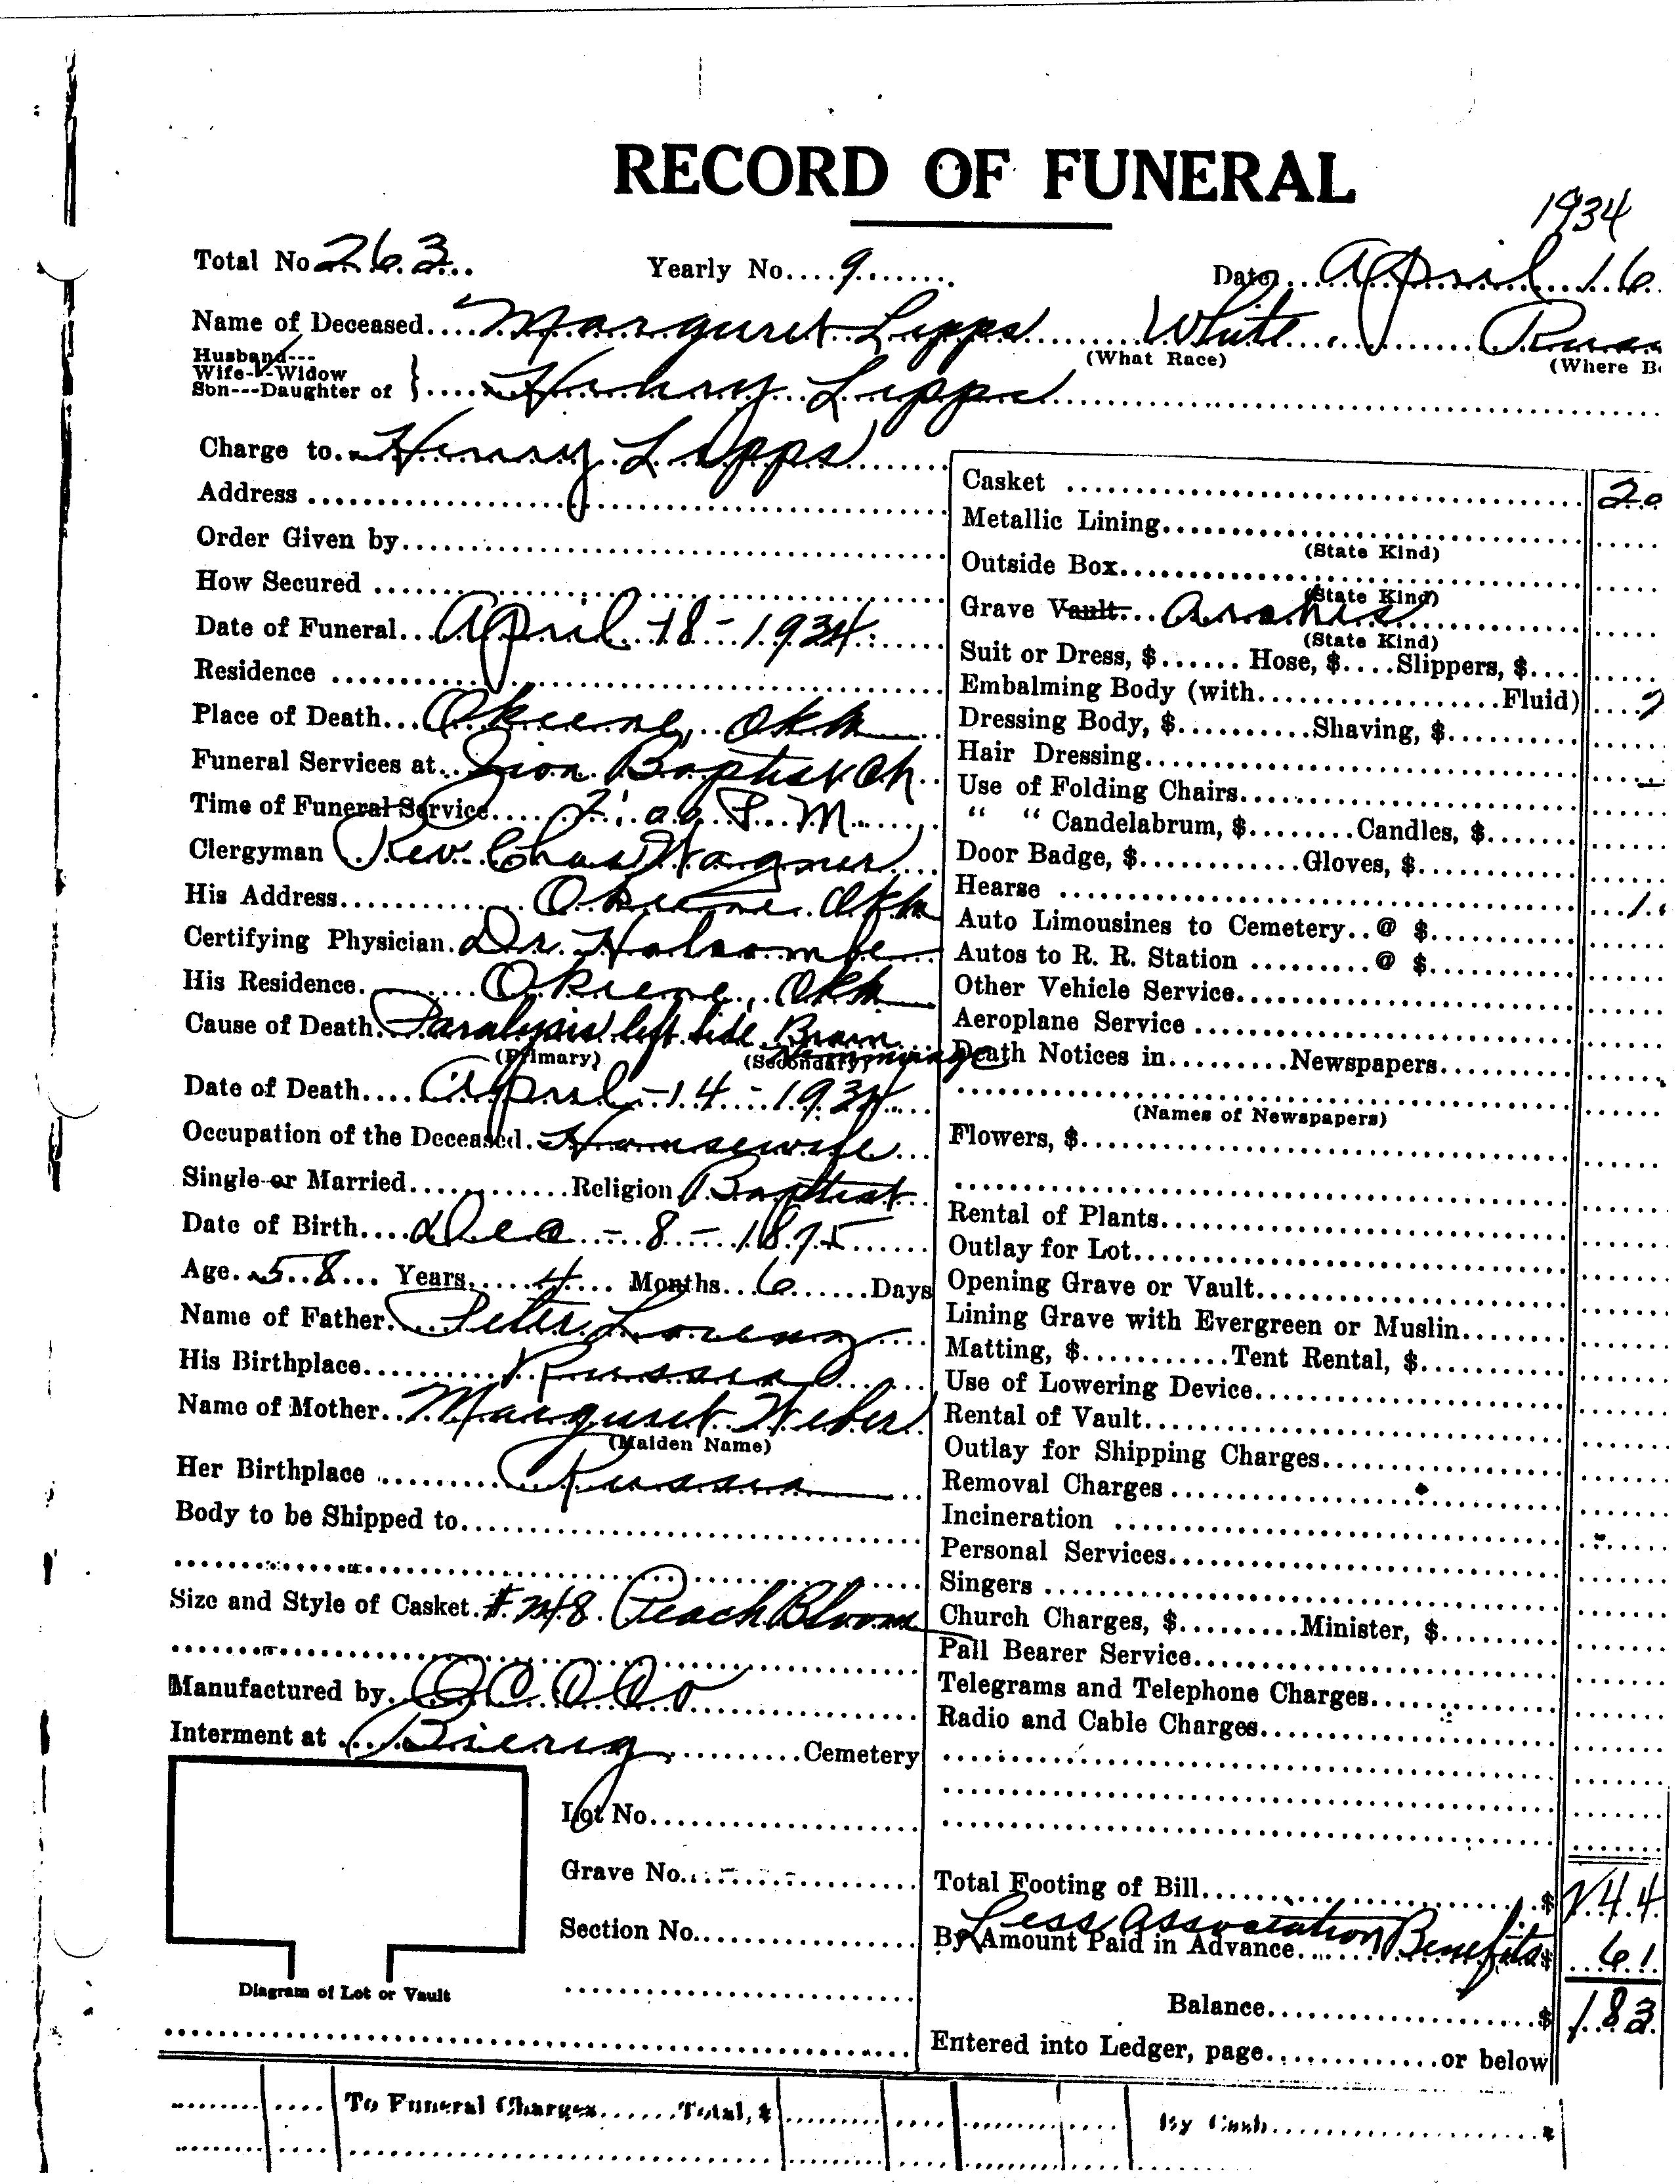 RECORD OF FUNERAL
1934
Total No 263 Yearly No. 9 Date April 16
Name of Deceased Marguret Lipps White
(What Race) (Where B
Husband---
Wife---Widow
Son---Daughter of } Henry Lipps
Charge to Henry Lipps
Address
Order Given by
How Secured
Date of Funeral April 18 - 1934
Residence
Place of Death Okeene, Okla
Funeral Services at Zion Baptist Ch
Time of Funeral Service 2:00 P.M.
Clergyman Rev. Chas Wagner
His Address Okeene Okla
Certifying Physician Dr. Holcombe
His Residence Okeene, Okla
Cause of Death Paralysis left side Brain
(Primary) (Secondary) Hemmorage
Date of Death April - 14 - 1934
Occupation of the Deceased Housewife
Single or Married Religion Baptist
Date of Birth Dec - 8 - 1875
Age 58 Years 4 Months 6 Days
Name of Father Peter Lorenz
His Birthplace Russia
Name of Mother Marguret Weber
(Maiden Name)
Her Birthplace Russia
Body to be Shipped to
Size and Style of Casket Peach Bloom
Manufactured by
Interment at Bierig Cemetery
Lot No.
Grave No.
Section No.
Diagram of Lot or Vault
Casket
Metallic Lining
(State Kind)
Outside Box
(State Kind)
Grave Vault
(State Kind)
Suit or Dress, $ Hose, $ Slippers, $
Embalming Body (with Fluid)
Dressing Body, $ Shaving, $
Hair Dressing
Use of Folding Chairs
“ “ Candelabrum, $ Candles, $
Door Badge, $ Gloves, $
Hearse
Auto Limousines to Cemetery @ $
Autos to R. R. Station @ $
Other Vehicle Service
Aeroplane Service
Death Notices in Newspapers
(Names of Newspapers)
Flowers, $
Rental of Plants
Outlay for Lot
Opening Grave or Vault
Lining Grave with Evergreen or Muslin
Matting, $ Tent Rental, $
Use of Lowering Device
Rental of Vault
Outlay for Shipping Charges
Removal Charges
Incineration
Personal Services
Singers
Church Charges, $ Minister, $
Pall Bearer Service
Telegrams and Telephone Charges
Radio and Cable Charges
Total Footing of Bill $ 244
Less Association Benefits
By Amount Paid in Advance $ 61
Balance $ 183
Entered into Ledger, page or below
To Funeral Charges Total, $ By Cash $